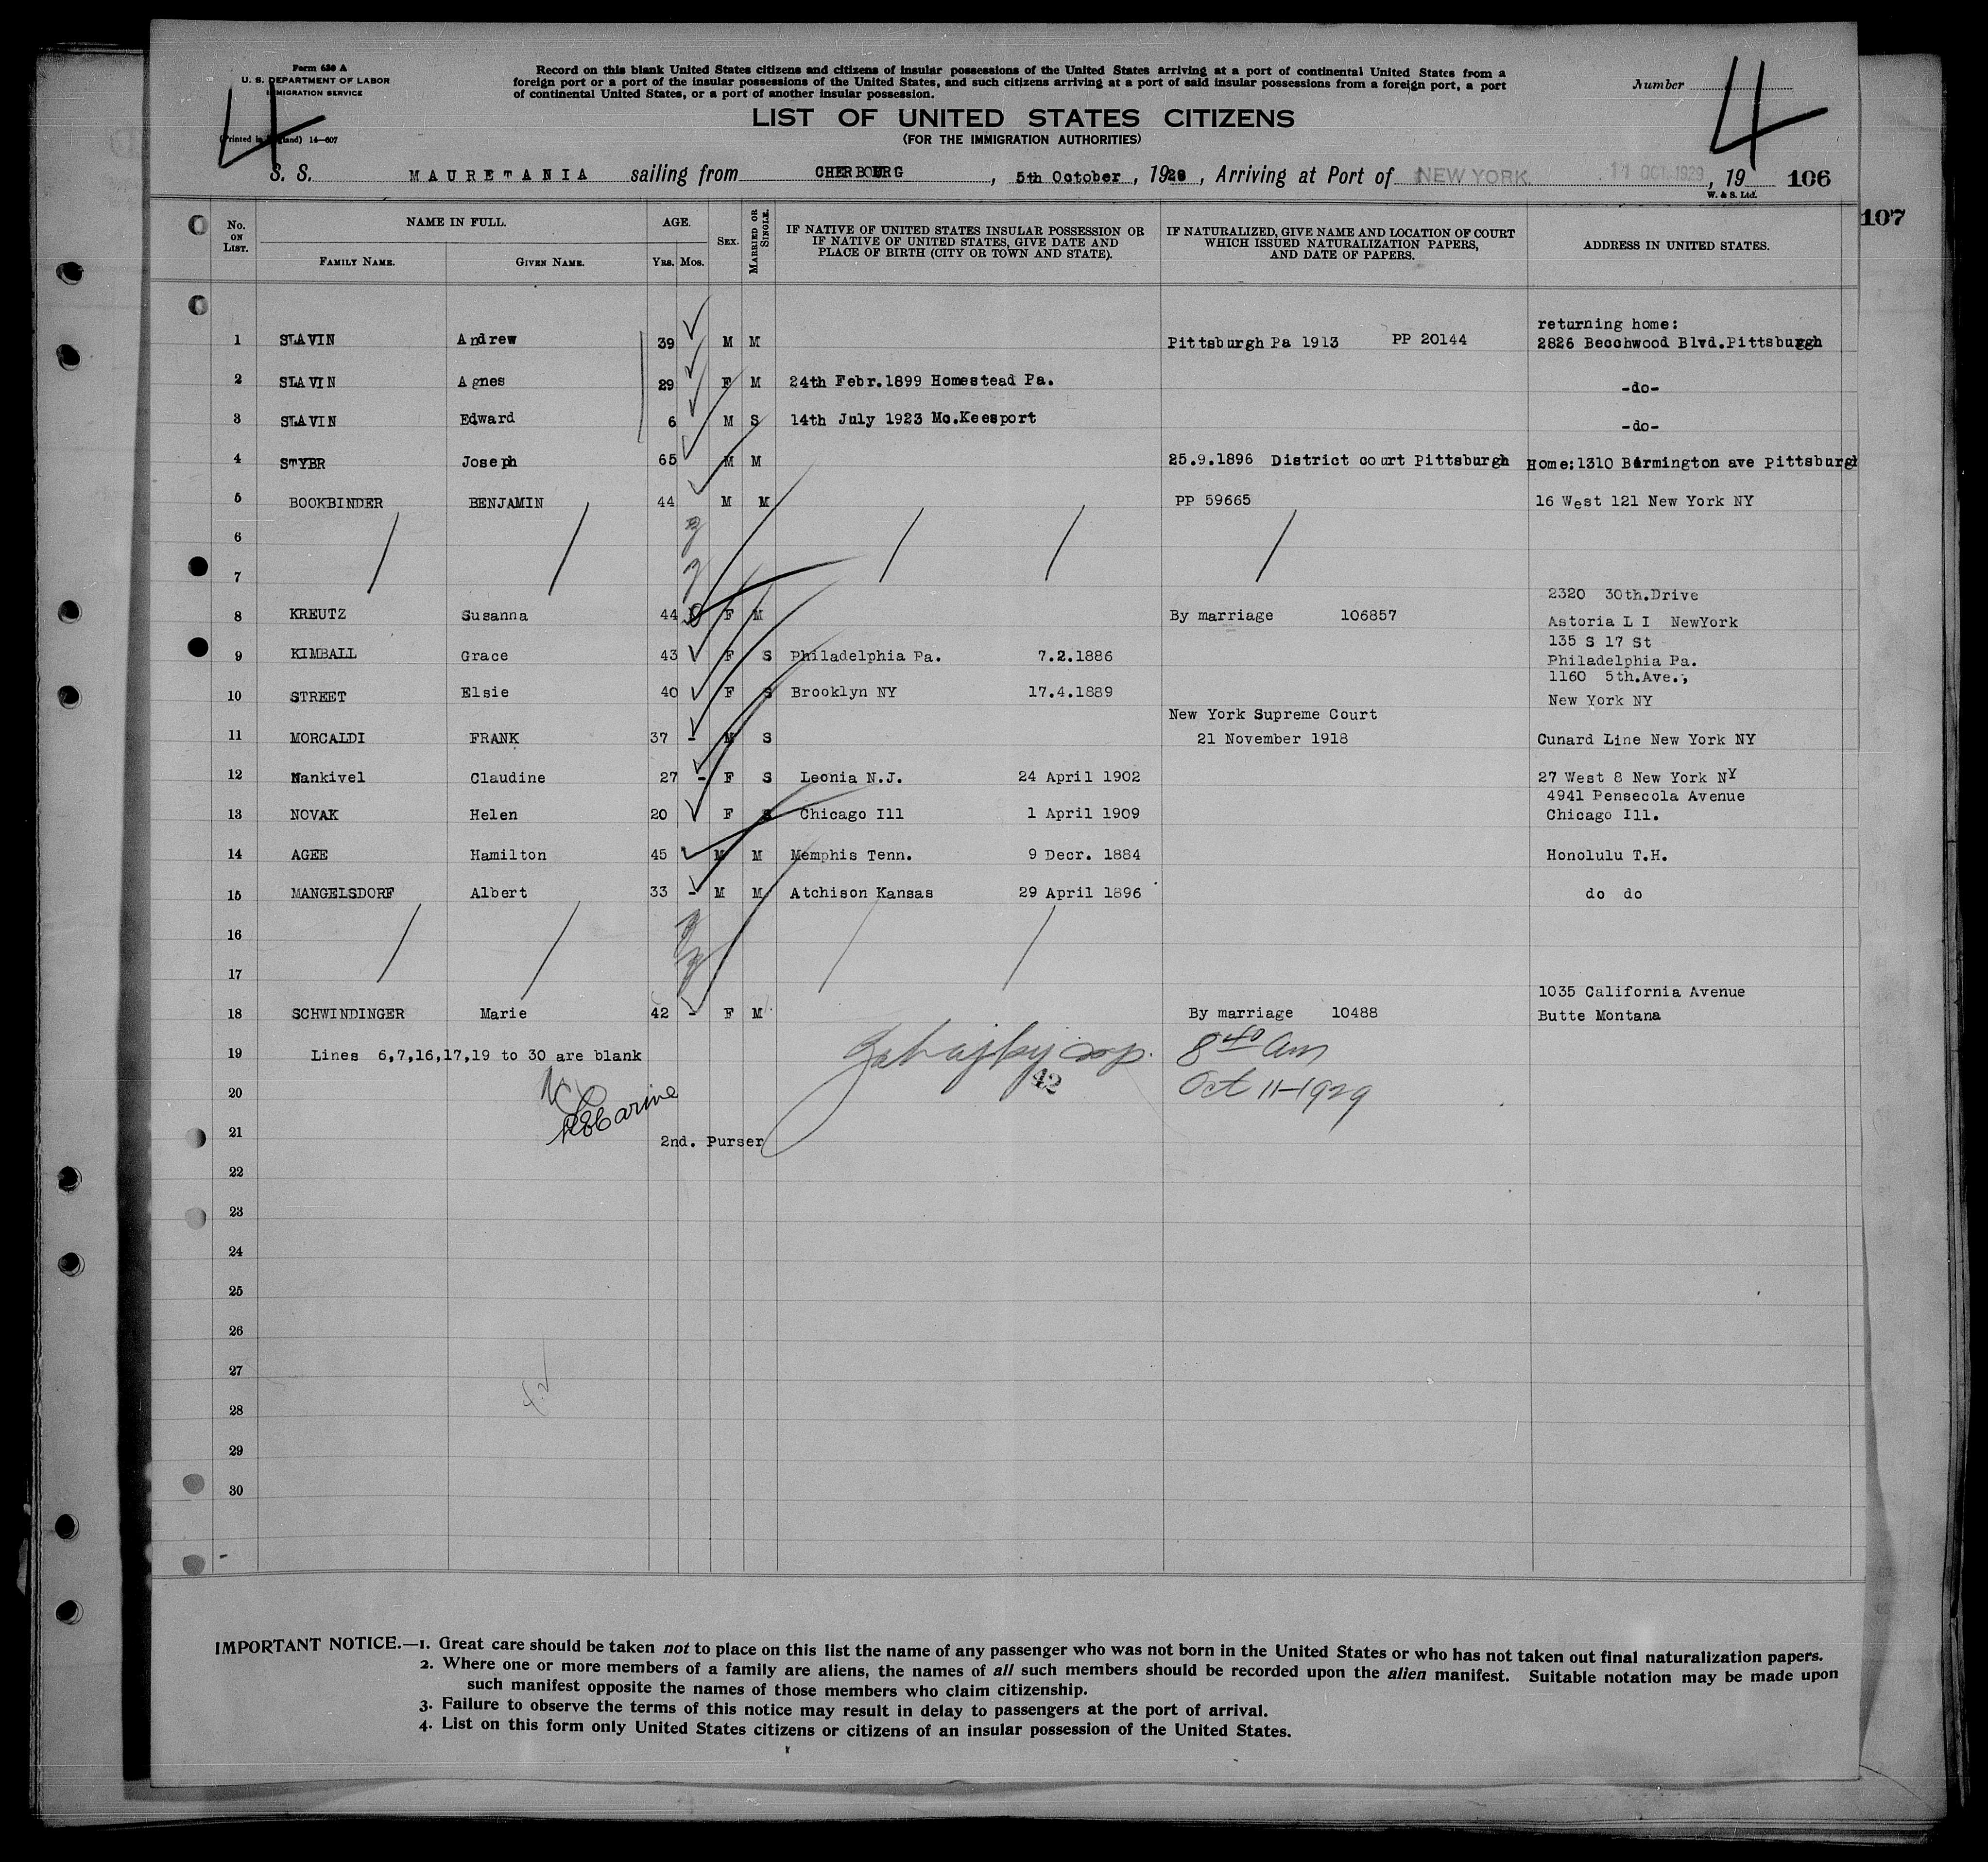 Form 630 A
U. S. DEPARTMENT OF LABOR
IMMIGRATION SERVICE
(Printed in England) 14—607
4
Record on this blank United States citizens and citizens of insular possessions of the United States arriving at a port of continental United States from a
foreign port or a port of the insular possessions of the United States, and such citizens arriving at a port of said insular possessions from a foreign port, a port
of continental United States, or a port of another insular possession.
Number
4
LIST OF UNITED STATES CITIZENS
(FOR THE IMMIGRATION AUTHORITIES)
S. S. MAURETANIA sailing from CHERBOURG, 5th October, 1929, Arriving at Port of NEW YORK 11 OCT. 1929, 19 106
W. & S. Ltd.
107
No. ON LIST. NAME IN FULL. FAMILY NAME. GIVEN NAME. AGE. YRS. MOS. SEX. MARRIED OR SINGLE. IF NATIVE OF UNITED STATES INSULAR POSSESSION OR IF NATIVE OF UNITED STATES, GIVE DATE AND PLACE OF BIRTH (CITY OR TOWN AND STATE). IF NATURALIZED, GIVE NAME AND LOCATION OF COURT WHICH ISSUED NATURALIZATION PAPERS, AND DATE OF PAPERS. ADDRESS IN UNITED STATES.
returning home:
1 SLAVIN Andrew 39 M M Pittsburgh Pa 1913 PP 20144 2826 Beechwood Blvd. Pittsburgh
2 SLAVIN Agnes 29 F M 24th Febr. 1899 Homestead Pa. -do-
3 SLAVIN Edward 6 M S 14th July 1923 Mc.Keesport -do-
4 STYBR Joseph 65 M M 25.9.1896 District court Pittsburgh Home: 1310 Birmington ave Pittsburgh
5 BOOKBINDER BENJAMIN 44 M M PP 59665 16 West 121 New York NY
6
7
2320 30th.Drive
8 KREUTZ Susanna 44 F M By marriage 106857 Astoria L I NewYork
135 S 17 St
9 KIMBALL Grace 43 F S Philadelphia Pa. 7.2.1886 Philadelphia Pa.
1160 5th.Ave.,
10 STREET Elsie 40 F S Brooklyn NY 17.4.1889 New York NY
New York Supreme Court
11 MORCALDI FRANK 37 - M S 21 November 1918 Cunard Line New York NY
12 Nankivel Claudine 27 - F S Leonia N.J. 24 April 1902 27 West 8 New York NY
4941 Pensecola Avenue
13 NOVAK Helen 20 F S Chicago Ill 1 April 1909 Chicago Ill.
14 AGEE Hamilton 45 M M Memphis Tenn. 9 Decr. 1884 Honolulu T.H.
15 MANGELSDORF Albert 33 - M M Atchison Kansas 29 April 1896 do do
16
17
1035 California Avenue
18 SCHWINDINGER Marie 42 - F M By marriage 10488 Butte Montana
19 Lines 6,7,16,17,19 to 30 are blank 8 40 am
42 Oct 11-1929
20
21 2nd. Purser
22
23
24
25
26
27
28
29
30
IMPORTANT NOTICE.—1. Great care should be taken not to place on this list the name of any passenger who was not born in the United States or who has not taken out final naturalization papers.
2. Where one or more members of a family are aliens, the names of all such members should be recorded upon the alien manifest. Suitable notation may be made upon
such manifest opposite the names of those members who claim citizenship.
3. Failure to observe the terms of this notice may result in delay to passengers at the port of arrival.
4. List on this form only United States citizens or citizens of an insular possession of the United States.